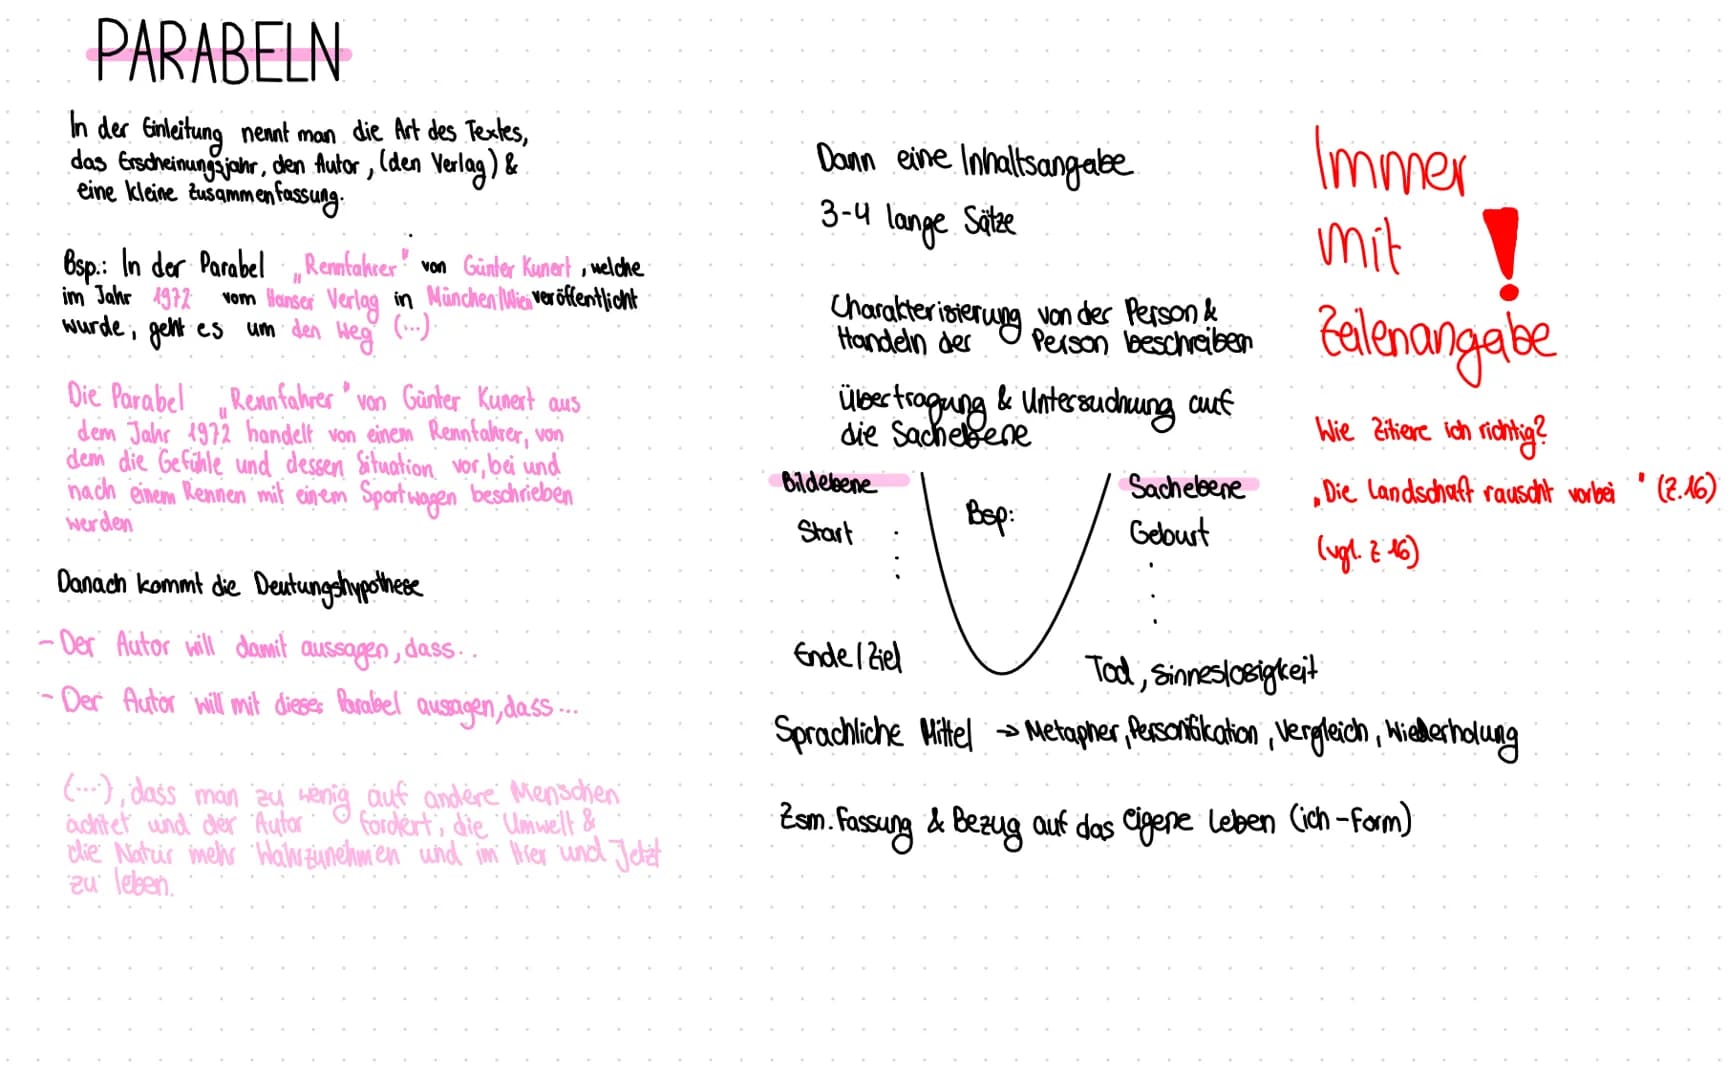 PARABELN
In der Einleitung nennt man die Art des Textes,
das Erscheinungsjahr, den Autor, (den Verlag) &
eine kleine Zusammenfassung.
Bsp.: In der Parabel „Rennfahrer" von Günter Kunert, welche
im Jahr 1972 vom Hanser Verlag in München/Wien veröffentlicht
wurde, geht es um den Weg (...)
Die Parabel „Rennfahrer" von Günter Kunert aus
dem Jahr 1972 handelt von einem Rennfahrer, von
dem die Gefühle und dessen Situation vor, bei und
nach einem Rennen mit einem Sportwagen beschrieben
werden
Danach kommt die Deutungshypothese
- Der Autor will damit aussagen, dass...
- Der Autor will mit dieser Parabel aussagen, dass...
(...), dass man zu wenig auf andere Menschen
achtet und der Autor fordert, die Umwelt &
die Natur mehr Wahrzunehmen und im Hier und Jetzt
zu leben.
Dann eine Inhaltsangabe
3-4 lange Sätze
Charakterisierung von der Person &
Handeln der Person beschreiben
Übertragung & Untersuchung auf
die Sachebene
Bildebene Bsp: Sachebene
Start Geburt
Ende/Ziel Tod, Sinneslosigkeit
Sprachliche Mittel → Metapher, Personifikation, Vergleich, Wiederholung
Zsm. Fassung & Bezug auf das eigene Leben (ich-Form)
Immer
mit !
Zeilenangabe
Wie Zitiere ich richtig?
„Die Landschaft rauscht vorbei" (Z.16)
(vgl. Z 16)